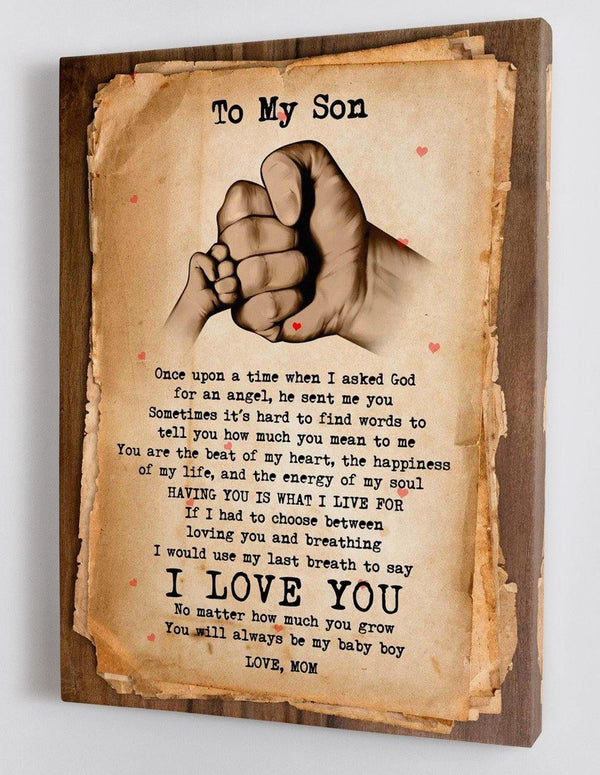 To My Son
Once upon a time when I asked God
for an angel, he sent me you
Sometimes it's hard to find words to
tell you how much you mean to me
You are the beat of my heart, the happiness
of my life, and the energy of my soul
HAVING YOU IS WHAT I LIVE FOR
If I had to choose between
loving you and breathing
I would use my last breath to say
I LOVE YOU
No matter how much you grow
You will always be my baby boy
LOVE, MOM